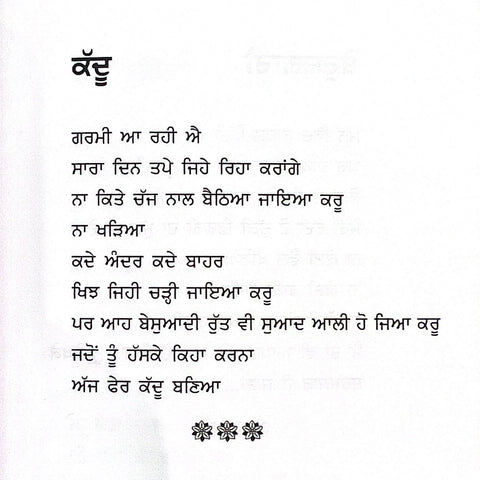 ਕੱਦੂ
ਗਰਮੀ ਆ ਰਹੀ ਐ
ਸਾਰਾ ਦਿਨ ਤਪੇ ਜਿਹੇ ਰਿਹਾ ਕਰਾਂਗੇ
ਨਾ ਕਿਤੇ ਚੱਜ ਨਾਲ ਬੈਠਿਆ ਜਾਇਆ ਕਰੂ
ਨਾ ਖੜਿਆ
ਕਦੇ ਅੰਦਰ ਕਦੇ ਬਾਹਰ
ਖਿਝ ਜਿਹੀ ਚੜ੍ਹੀ ਜਾਇਆ ਕਰੂ
ਪਰ ਆਹ ਬੇਸੁਆਦੀ ਰੁੱਤ ਵੀ ਸੁਆਦ ਆਲੀ ਹੋ ਜਿਆ ਕਰੂ
ਜਦੋਂ ਤੂੰ ਹੱਸਕੇ ਕਿਹਾ ਕਰਨਾ
ਅੱਜ ਫੇਰ ਕੱਦੂ ਬਣਿਆ